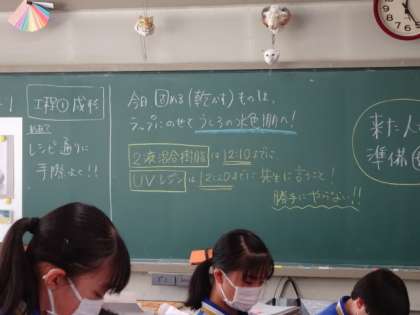 工程① 成形
レシピ通りに
手際よく!!
今日固める(乾かす)ものは、
ラップにのせてうしろの水色の棚へ!
2液混合樹脂は12:10までに
UVレジンは12:20までに先生に言うこと!
勝手にやらない!!
来た人
準備